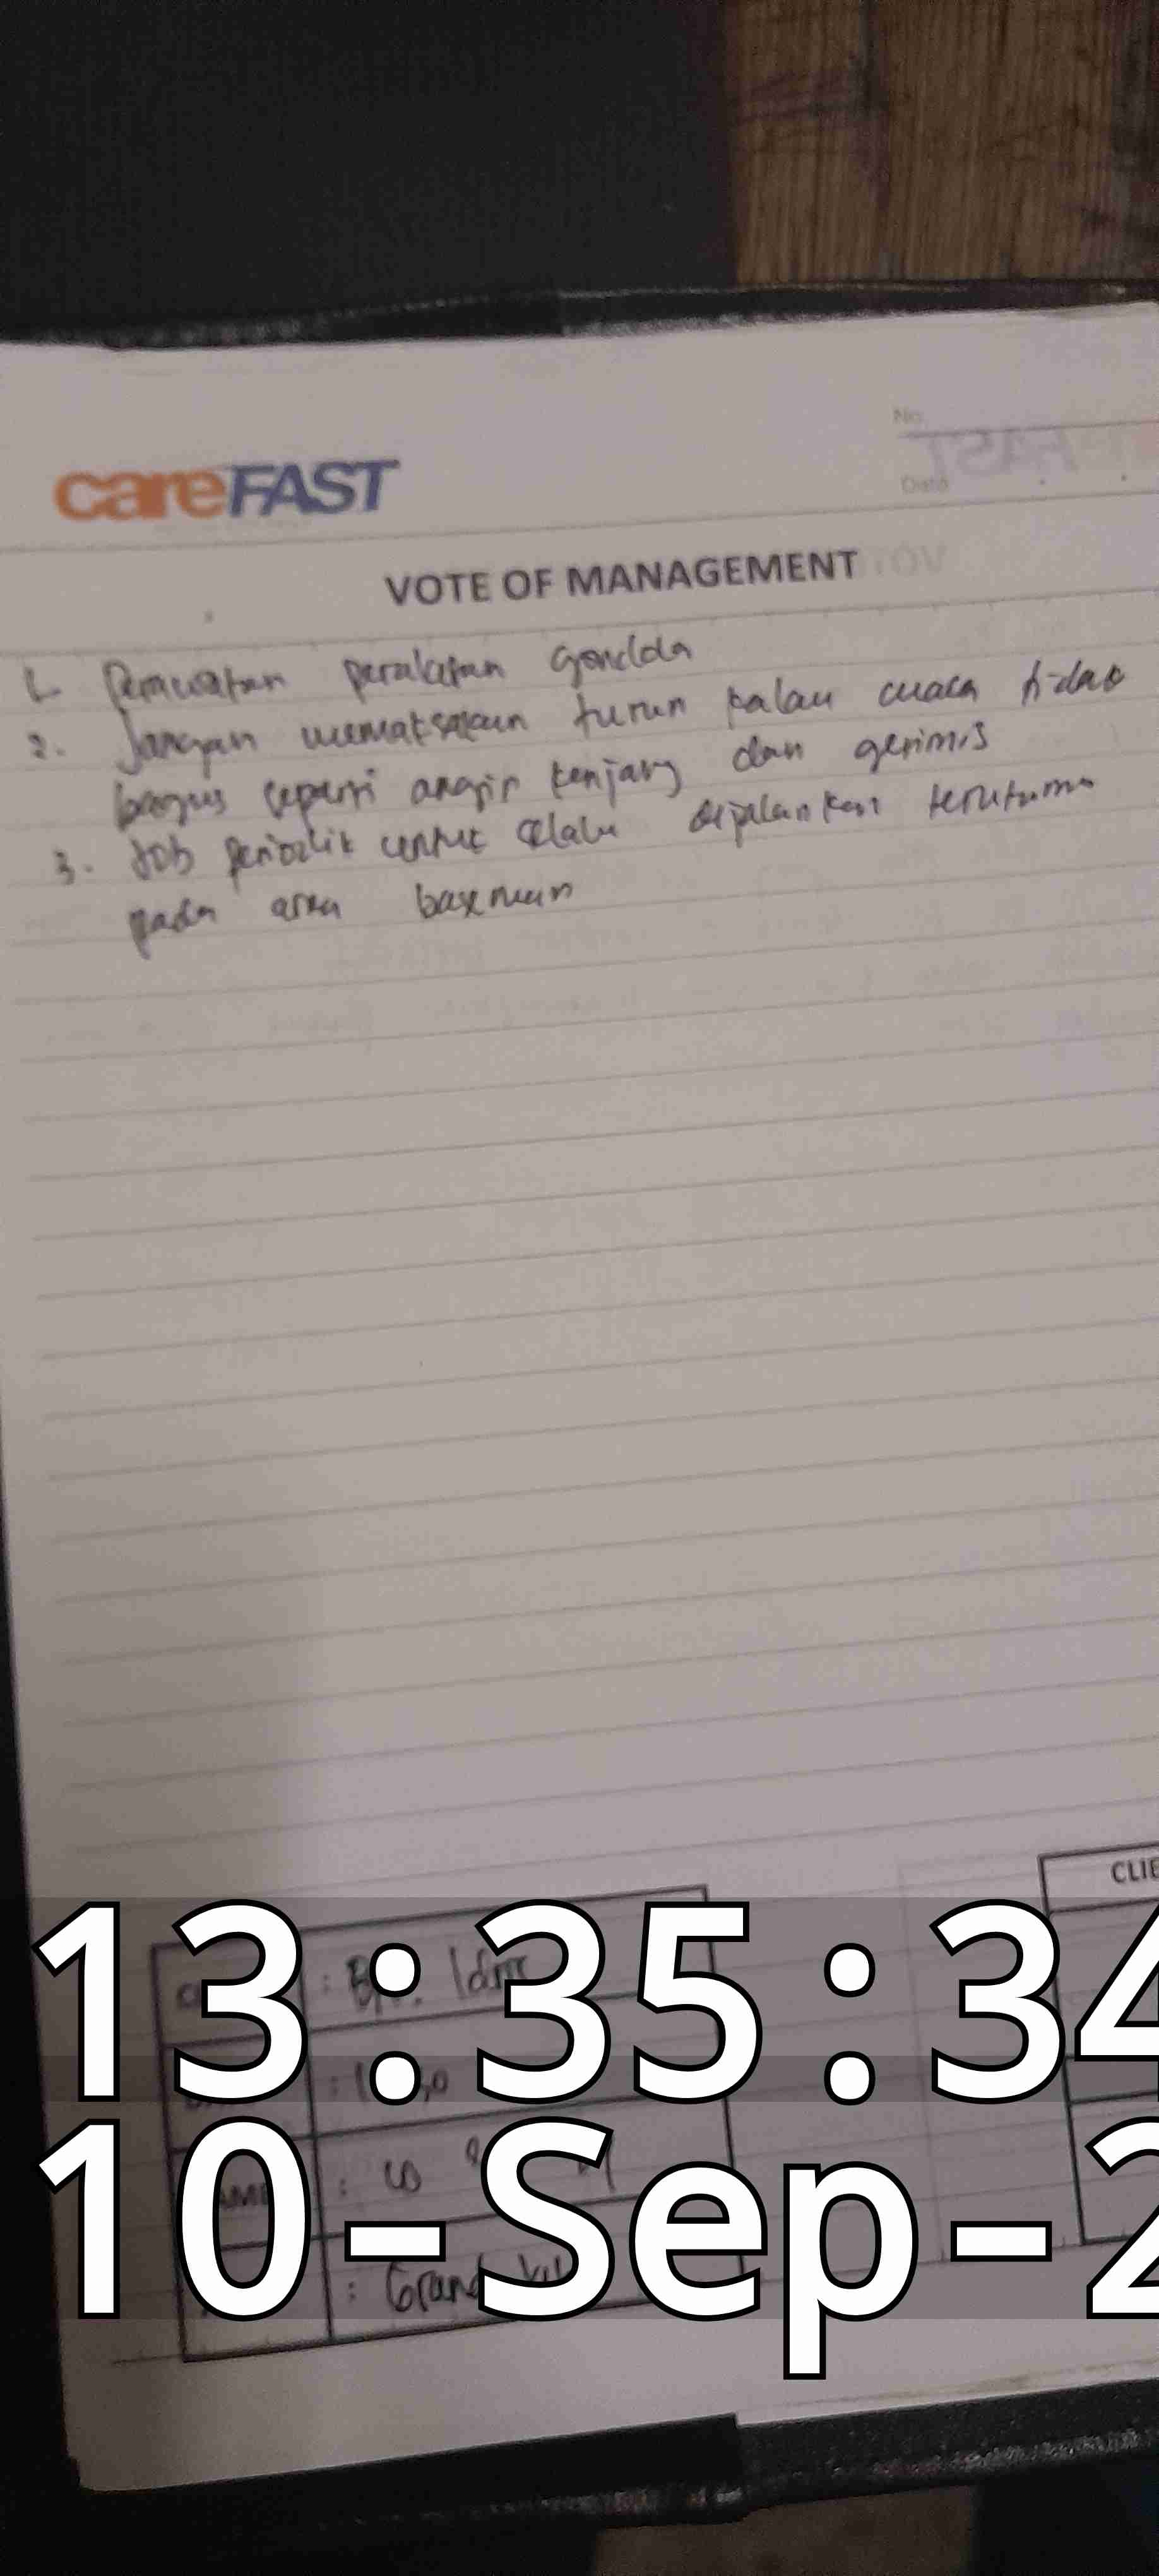 No.
careFAST
Date
VOTE OF MANAGEMENT
1. Perawatan peralatan gondola
2. Jangan memaksakan turun kalau cuaca tidak
bagus seperti angin kenjang dan gerimis
3. Job periodik untuk selalu dijalankan terutama
pada area basemen
CLIE
: Bpk.
: Grand
13:35:34
10-Sep-2